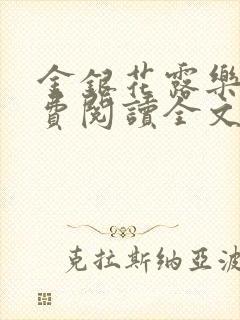 金銀花露樂
費閱讀全文
克拉斯納亞波